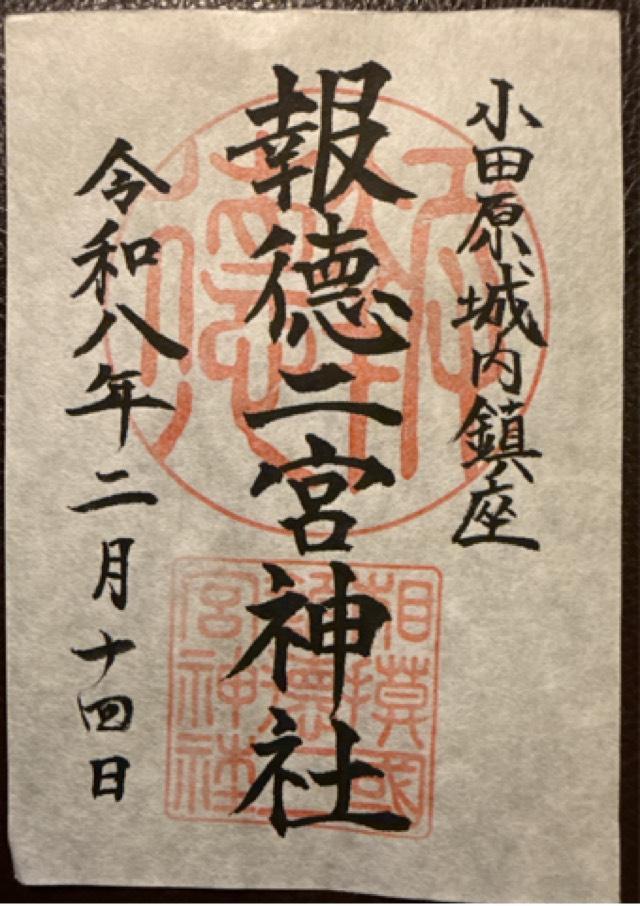 小田原城内鎮座
報徳二宮神社
令和八年二月十四日
相摸國
報徳二
宮神社